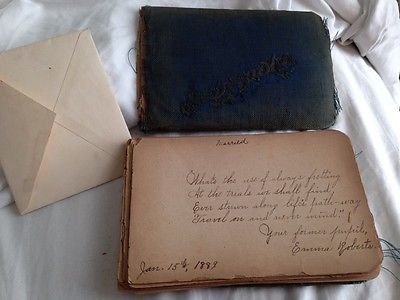 Married
"What's the use of always fretting
At the trials we shall find,
Ever strewn along life's path-way
Travel on and never mind."
Your former pupil,
Emma Roberts.
Jan. 15th, 1889